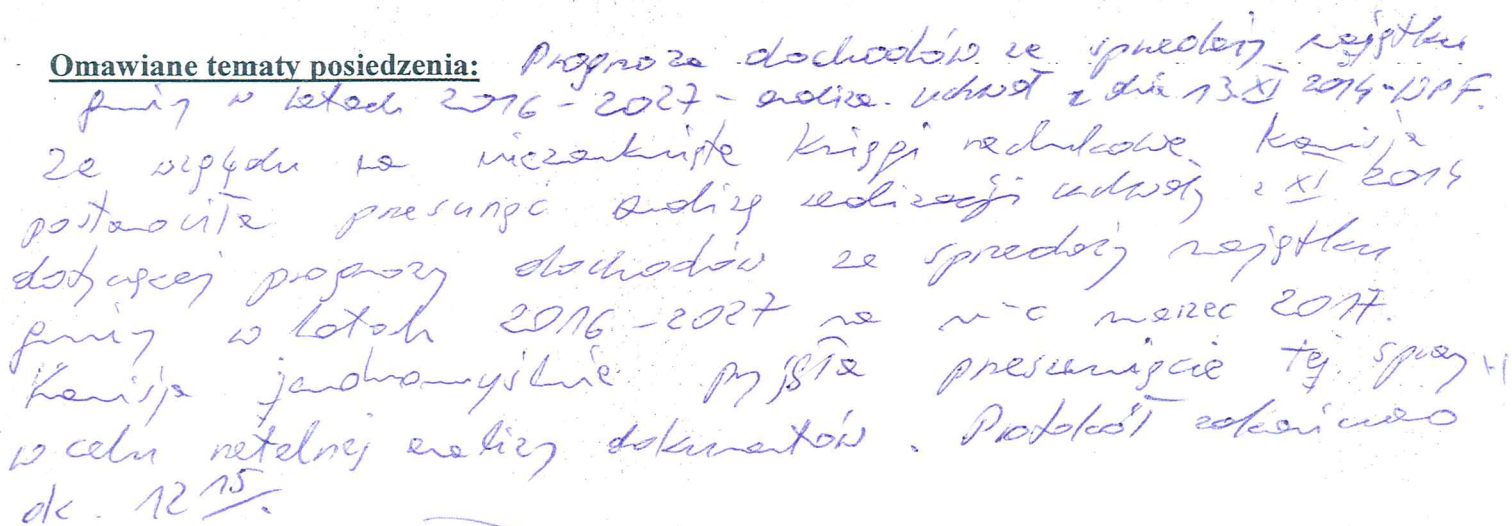 Omawiane tematy posiedzenia: Prognoza dochodów ze sprzedaży majątku
gminy w latach 2016-2027 - analiza uchwał z dnia 13.XI 2014-WPF.
Ze względu na niezamknięte księgi rachunkowe Komisja
postanowiła przesunąć analizę realizacji uchwały z XI 2014
dotyczącej prognozy dochodów ze sprzedaży majątku
gminy w latach 2016-2027 na m-c marzec 2017.
Komisja jednomyślnie przyjęła przesunięcie tej sprawy
w celu rzetelnej analizy dokumentów. Protokół zakończono
ok. 12 15.